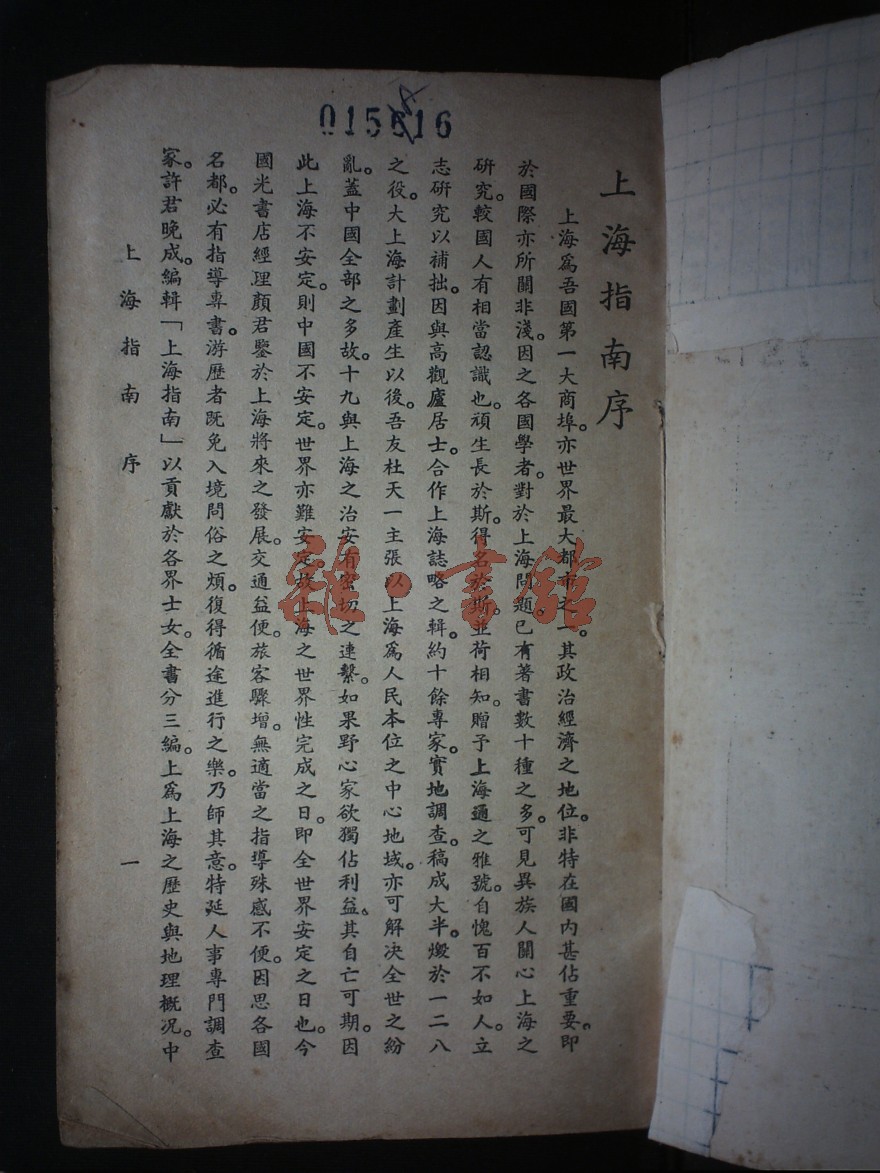 015616
8
上海指南序
上海爲吾國第一大商埠。亦世界最大都市之一。其政治經濟之地位。非特在國内甚佔重要。即
於國際亦所關非淺。因之各國學者。對於上海問題。已有著書數十種之多。可見異族人關心上海之
研究。較國人有相當認識也。頑生長於斯。得名於斯。並荷相知。贈予上海通之雅號。自愧百不如人。立
志研究以補拙。因與高觀廬居士。合作上海誌略之輯。約十餘專家。實地調查。稿成大半。燬於一二八
之役。大上海計劃產生以後。吾友杜天一主張以上海爲人民本位之中心地域。亦可解決全世之紛
亂。蓋中國全部之多故。十九與上海之治安有密切之連繫。如果野心家欲獨佔利益。其自亡可期。因
此上海不安定。則中國不安定。世界亦難安定。故上海之世界性完成之日。即全世界安定之日也。今
國光書店經理顏君鑒於上海將來之發展。交通益便。旅客驟增。無適當之指導殊感不便。因思各國
名都。必有指導專書。游歷者既免入境問俗之煩。復得循途進行之樂。乃師其意。特延人事專門調查
家。許君晚成。編輯「上海指南」以貢獻於各界士女。全書分三編。上爲上海之歷史與地理概况。中
上海指南序 一
雜·書館